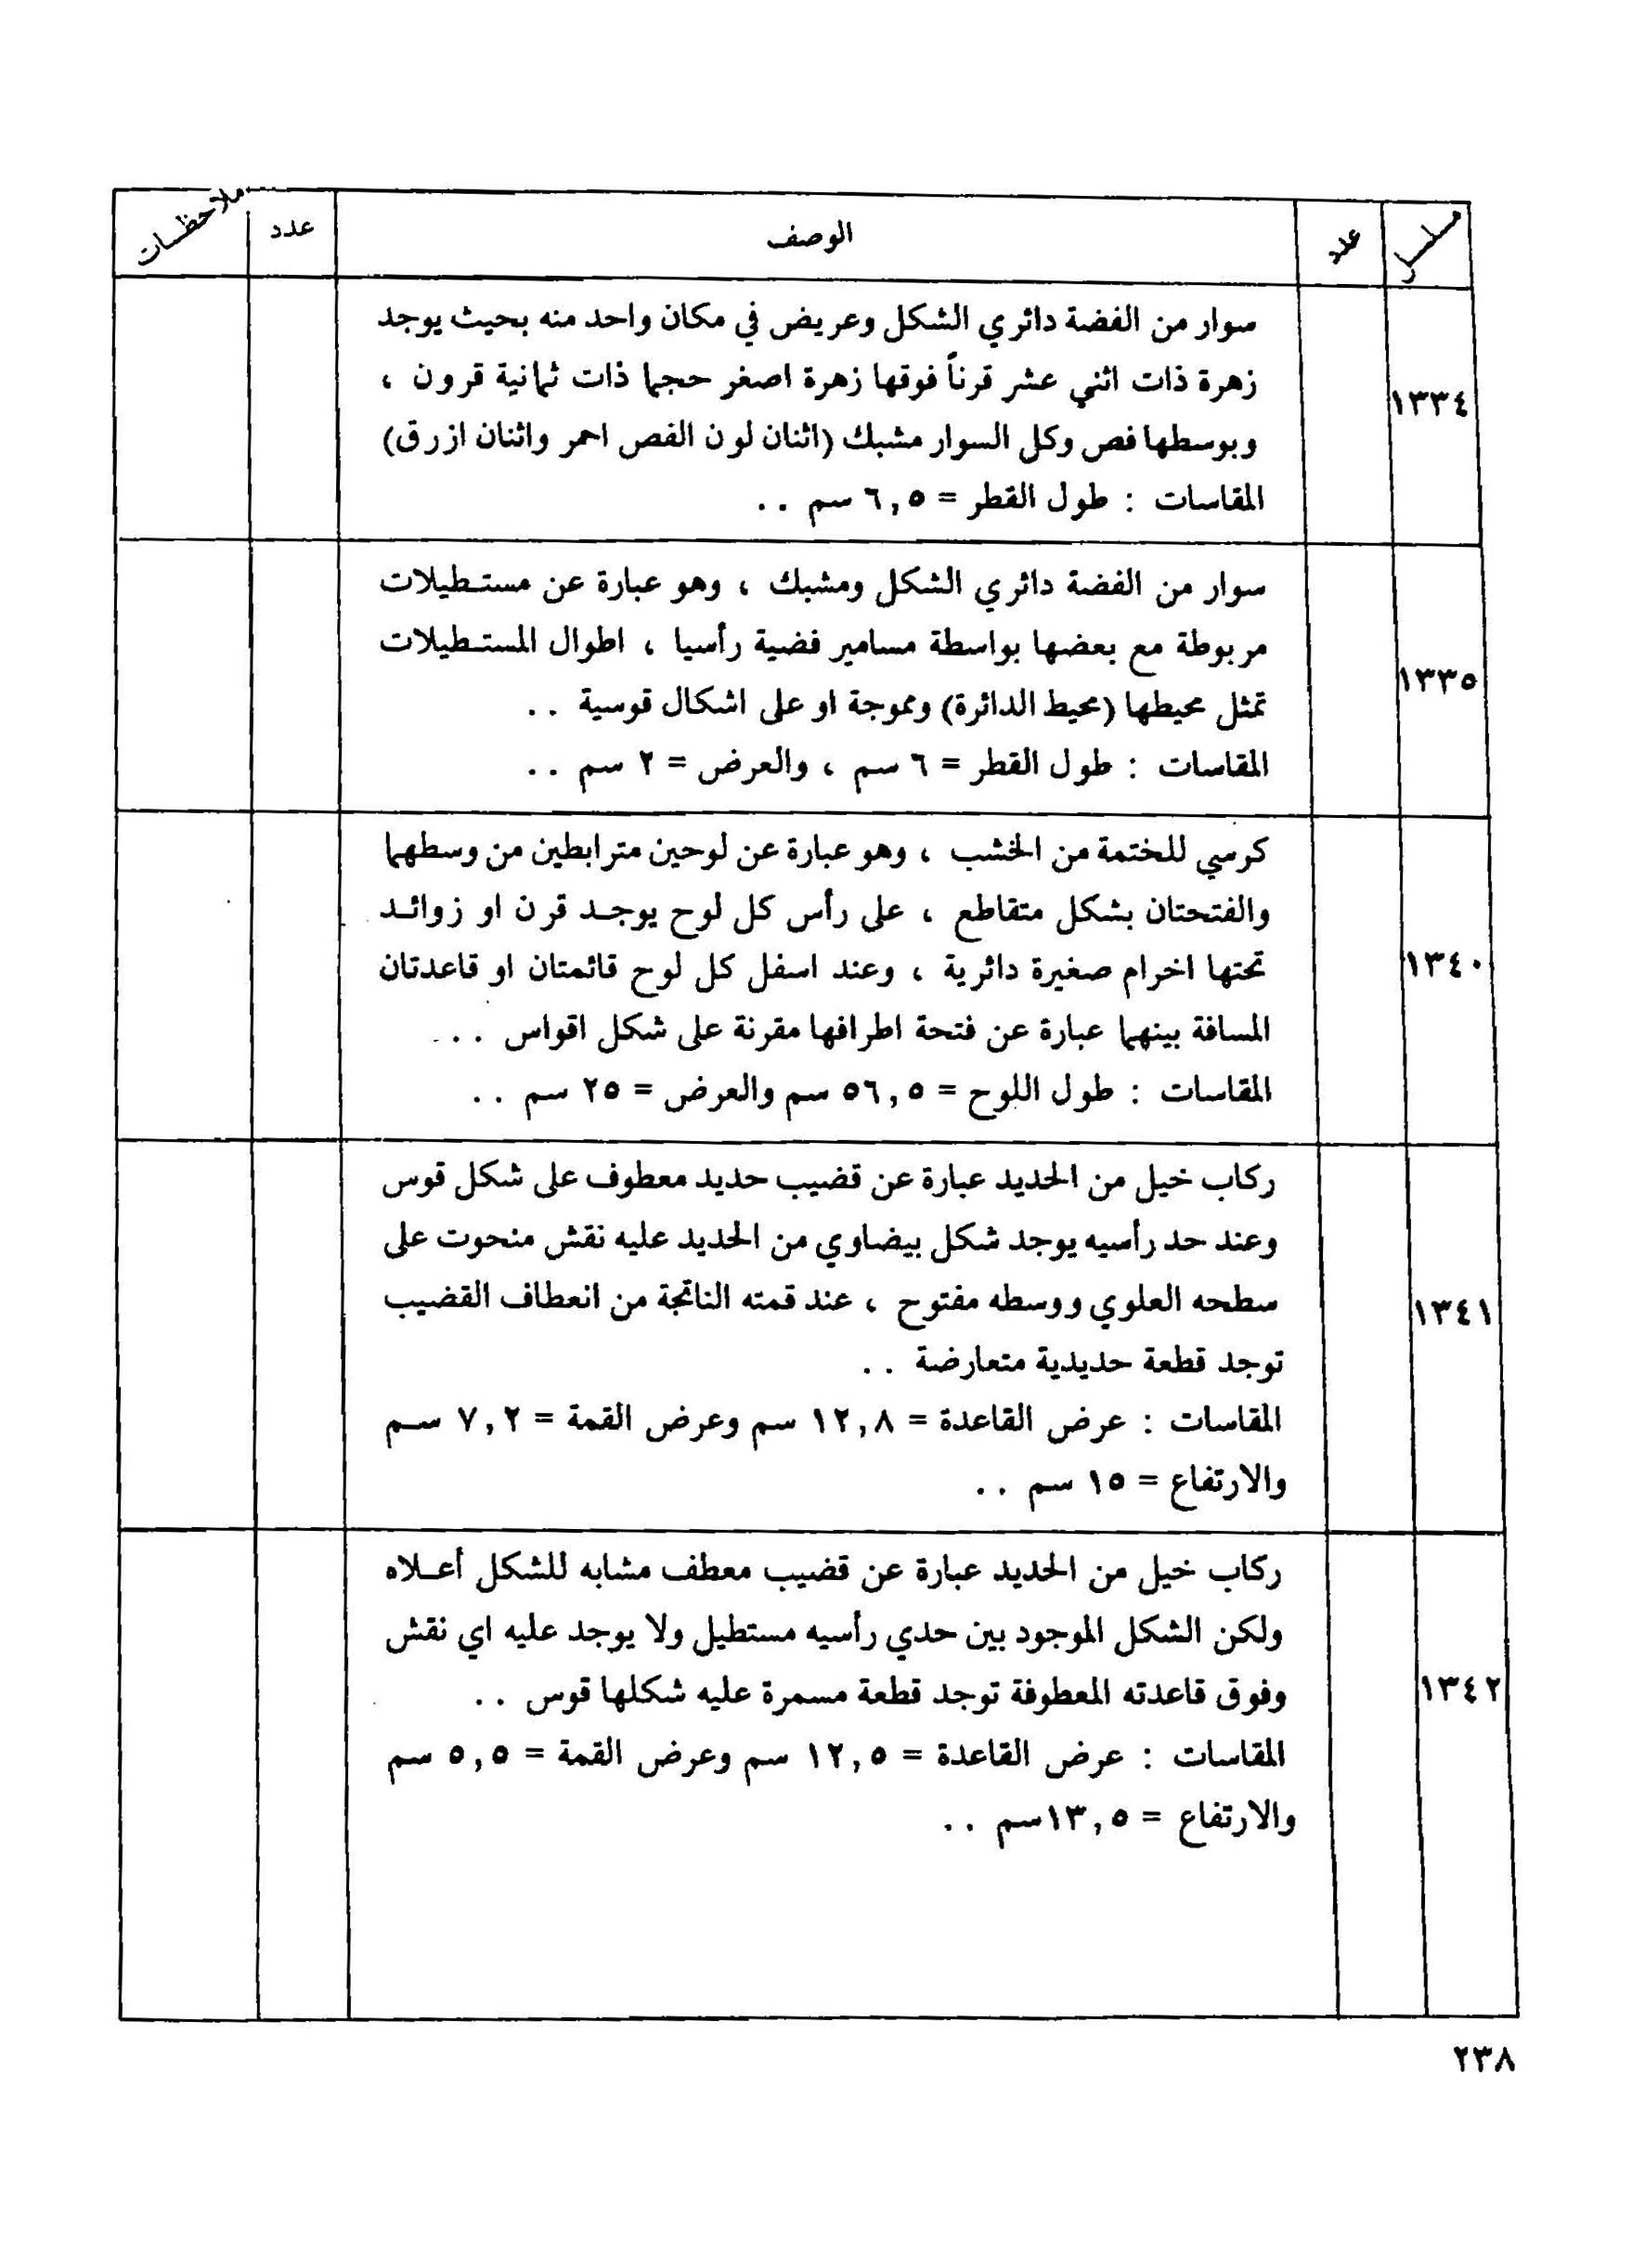 مسلسل عدد الوصف عدد ملاحظات
١٣٣٤
سوار من الفضة دائري الشكل وعريض في مكان واحد منه بحيث يوجد
زهرة ذات اثني عشر قرناً فوقها زهرة اصغر حجما ذات ثمانية قرون ،
وبوسطها فص وكل السوار مشبك (اثنان لون الفص احمر واثنان ازرق)
المقاسات : طول القطر = ٦,٥ سم ..
١٣٣٥
سوار من الفضة دائري الشكل ومشبك ، وهو عبارة عن مستطيلات
مربوطة مع بعضها بواسطة مسامير فضية رأسيا ، اطوال المستطيلات
تمثل محيطها (محيط الدائرة) ومموجة او على اشكال قوسية ..
المقاسات : طول القطر = ٦ سم ، والعرض = ٢ سم ..
١٣٤٠
كرسي للختمة من الخشب ، وهو عبارة عن لوحين مترابطين من وسطهما
والفتحتان بشكل متقاطع ، على رأس كل لوح يوجد قرن او زوائد
تحتها اخرام صغيرة دائرية ، وعند اسفل كل لوح قائمتان او قاعدتان
المسافة بينهما عبارة عن فتحة اطرافها مقرنة على شكل اقواس ...
المقاسات : طول اللوح = ٥٦,٥ سم والعرض = ٢٥ سم ..
١٣٤١
ركاب خيل من الحديد عبارة عن قضيب حديد معطوف على شكل قوس
وعند حد رأسيه يوجد شكل بيضاوي من الحديد عليه نقش منحوت على
سطحه العلوي ووسطه مفتوح ، عند قمته الناتجة من انعطاف القضيب
توجد قطعة حديدية متعارضة ..
المقاسات : عرض القاعدة = ١٢,٨ سم وعرض القمة = ٧,٢ سم
والارتفاع = ١٥ سم ..
١٣٤٢
ركاب خيل من الحديد عبارة عن قضيب معطف مشابه للشكل أعلاه
ولكن الشكل الموجود بين حدي رأسيه مستطيل ولا يوجد عليه اي نقش
وفوق قاعدته المعطوفة توجد قطعة مسمرة عليه شكلها قوس ..
المقاسات : عرض القاعدة = ١٢,٥ سم وعرض القمة = ٥,٥ سم
والارتفاع = ١٣,٥سم ..
٢٣٨